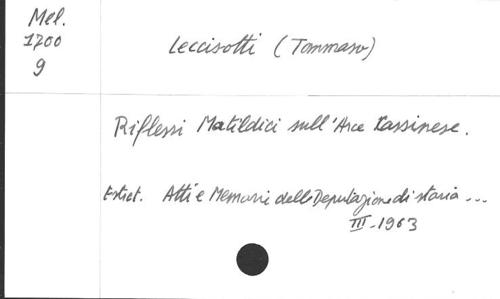 Mel.
1200
9
Leccisotti (Tommaso)
Riflessi Matildici sull'Arce Cassinese.
Estrat. Atti e Memorie delle Deputazione di storia ...
III - 1963